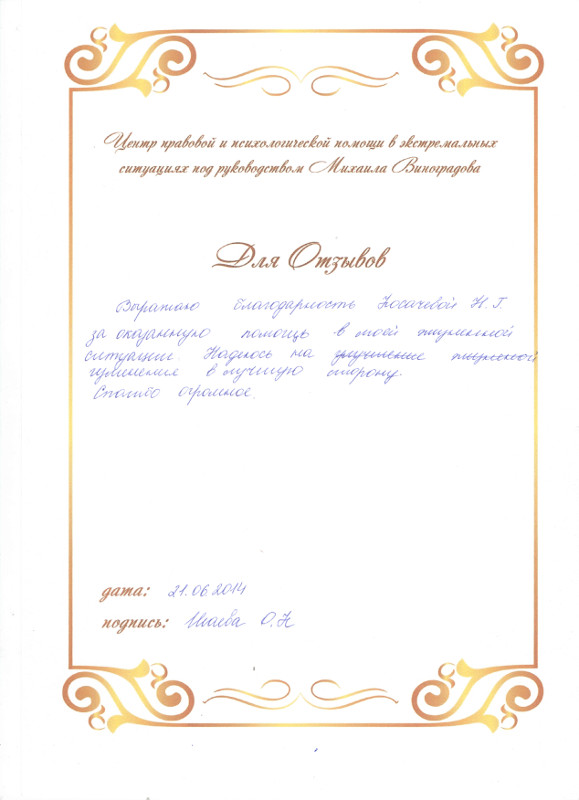 Центр правовой и психологической помощи в экстремальных
ситуациях под руководством Михаила Виноградова
Для Отзывов
Выражаю благодарность Косачевой Н.Г.
за оказанную помощь в моей жизненной
ситуации Надеюсь на
изменения в лучшую сторону.
Спасибо огромное.
дата: 21.06.2014
подпись: О.Н